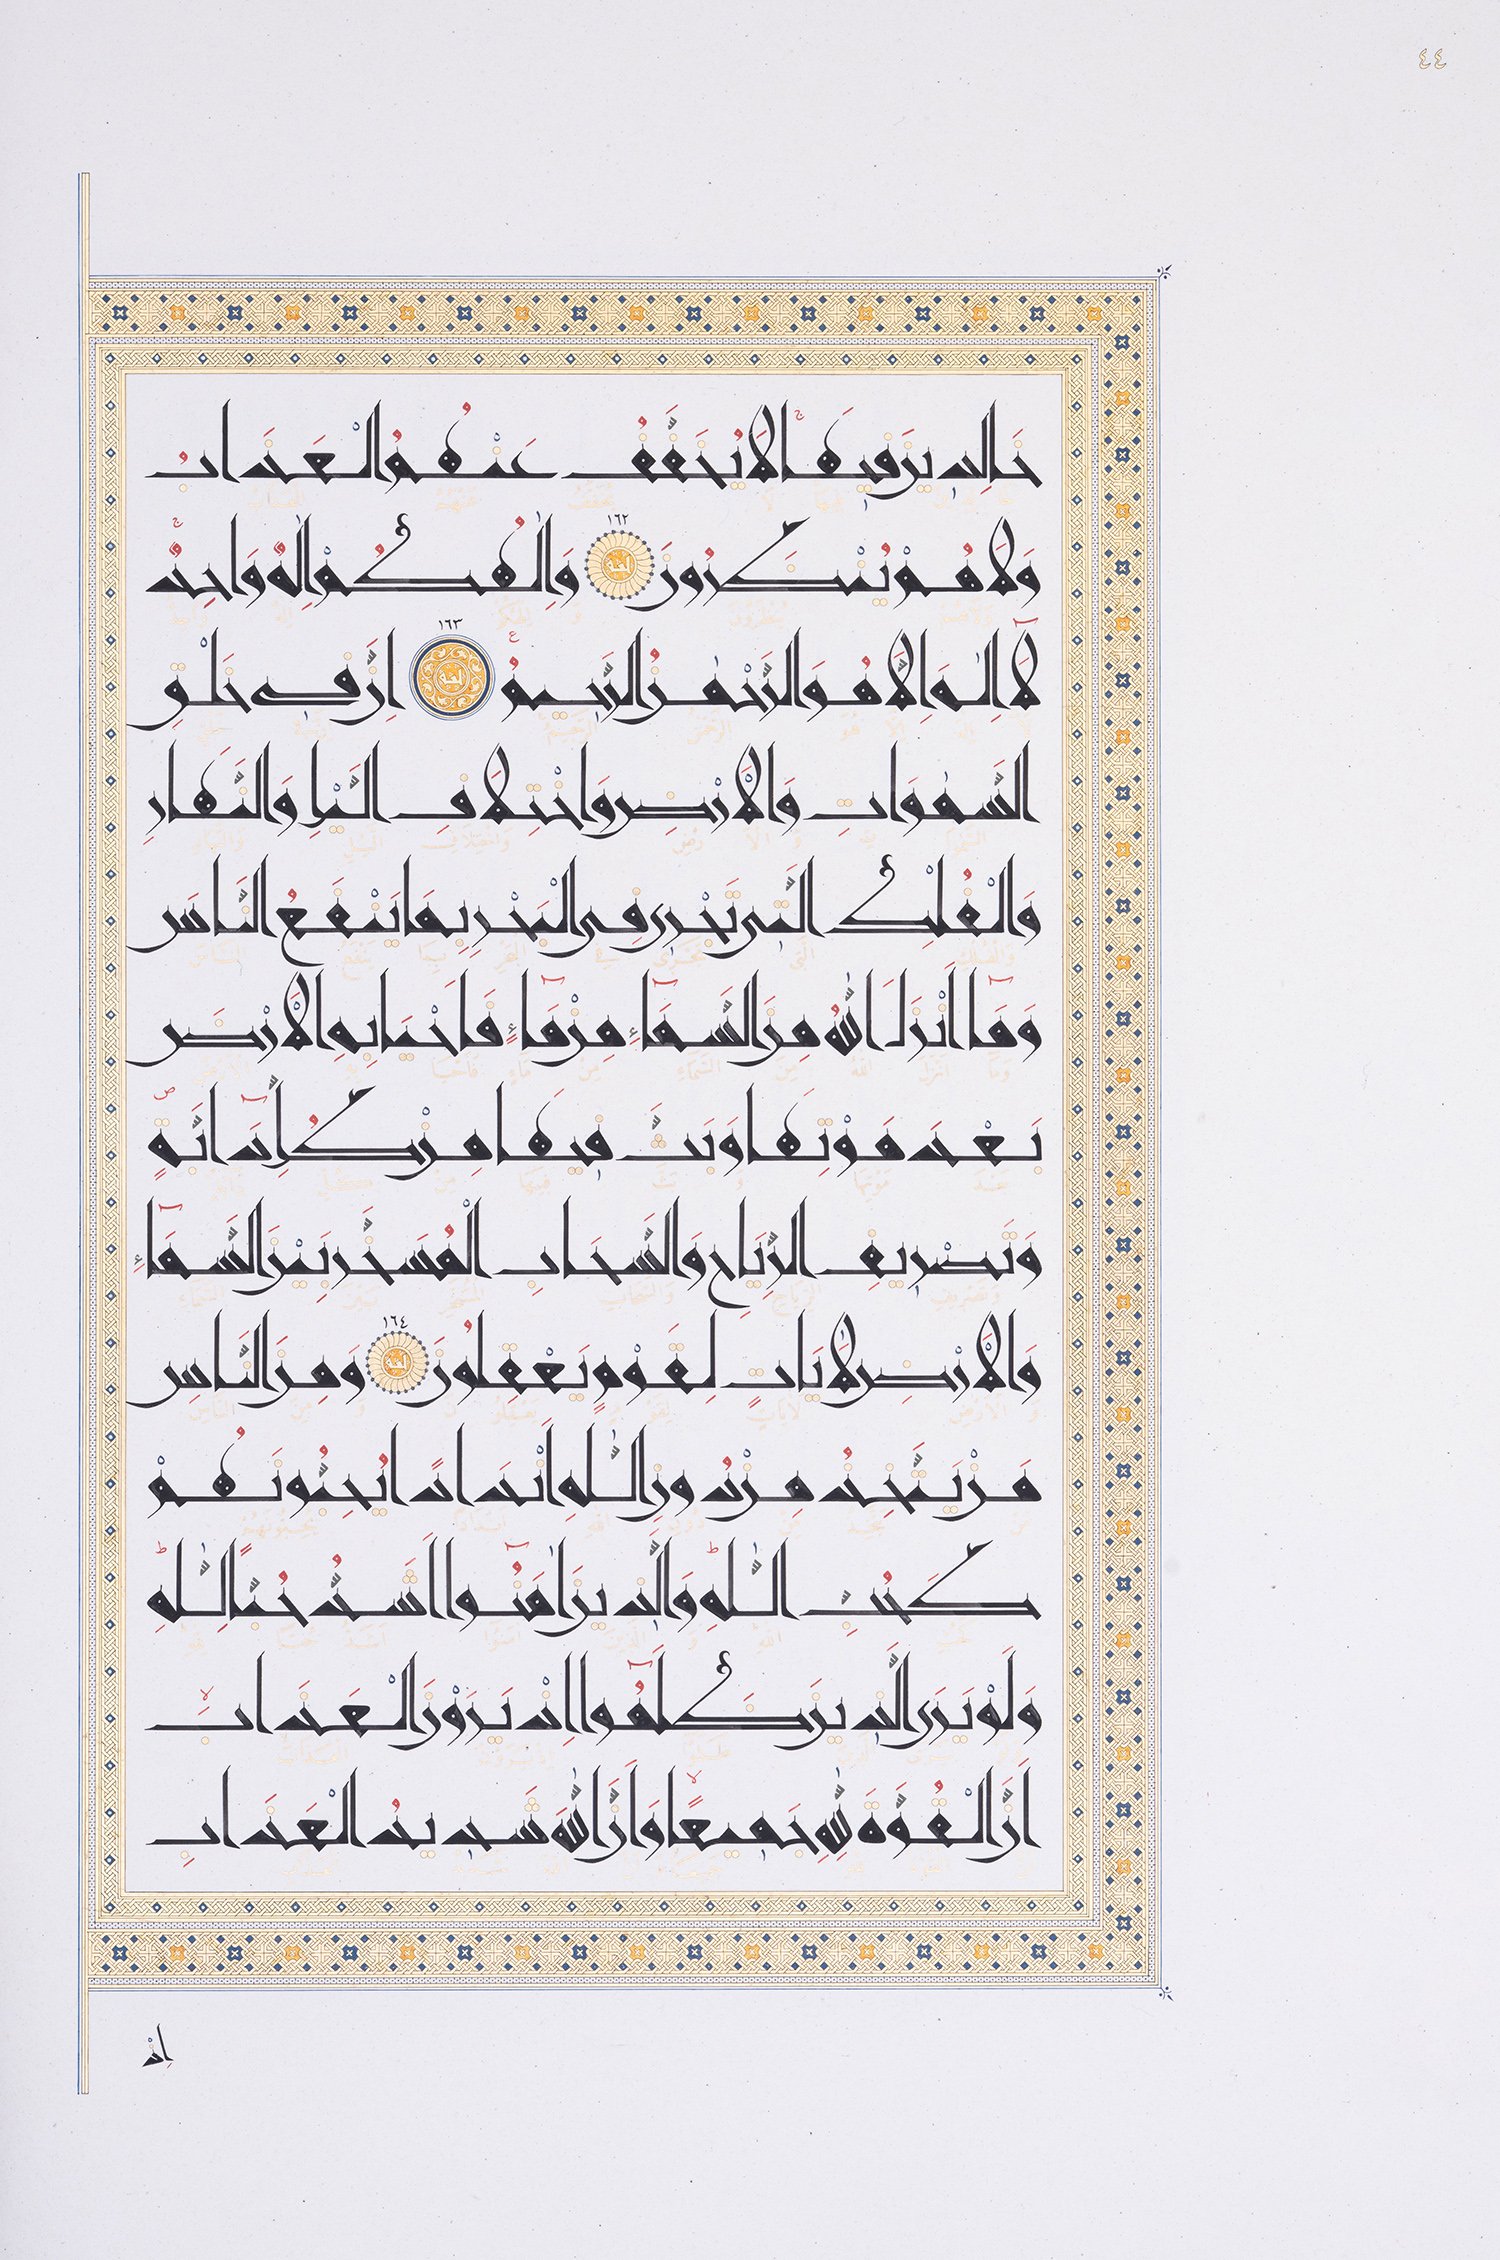 ٤٤
خَالِدِينَ فِيهَا لَا يُخَفَّفُ عَنْهُمُ الْعَذَابُ
وَلَا هُمْ يُنْظَرُونَ ١٦٢ وَإِلٰهُكُمْ إِلٰهٌ وَاحِدٌ
لَآ إِلٰهَ إِلَّا هُوَ الرَّحْمٰنُ الرَّحِيمُ ١٦٣ إِنَّ فِي خَلْقِ
السَّمٰوَاتِ وَالْأَرْضِ وَاخْتِلَافِ الَّيْلِ وَالنَّهَارِ
وَالْفُلْكِ الَّتِي تَجْرِي فِي الْبَحْرِ بِمَا يَنْفَعُ النَّاسَ
وَمَآ أَنْزَلَ اللّٰهُ مِنَ السَّمَآءِ مِنْ مَآءٍ فَأَحْيَا بِهِ الْأَرْضَ
بَعْدَ مَوْتِهَا وَبَثَّ فِيهَا مِنْ كُلِّ دَآبَّةٍ
وَتَصْرِيفِ الرِّيَاحِ وَالسَّحَابِ الْمُسَخَّرِ بَيْنَ السَّمَآءِ
وَالْأَرْضِ لَأٰيَاتٍ لِقَوْمٍ يَعْقِلُونَ ١٦٤ وَمِنَ النَّاسِ
مَنْ يَتَّخِذُ مِنْ دُونِ اللّٰهِ أَنْدَادًا يُحِبُّونَهُمْ
كَحُبِّ اللّٰهِ وَالَّذِينَ اٰمَنُوٓا أَشَدُّ حُبًّا لِلّٰهِ
وَلَوْ يَرَى الَّذِينَ ظَلَمُوٓا إِذْ يَرَوْنَ الْعَذَابَ
أَنَّ الْقُوَّةَ لِلّٰهِ جَمِيعًا وَأَنَّ اللّٰهَ شَدِيدُ الْعَذَابِ
إِذْ